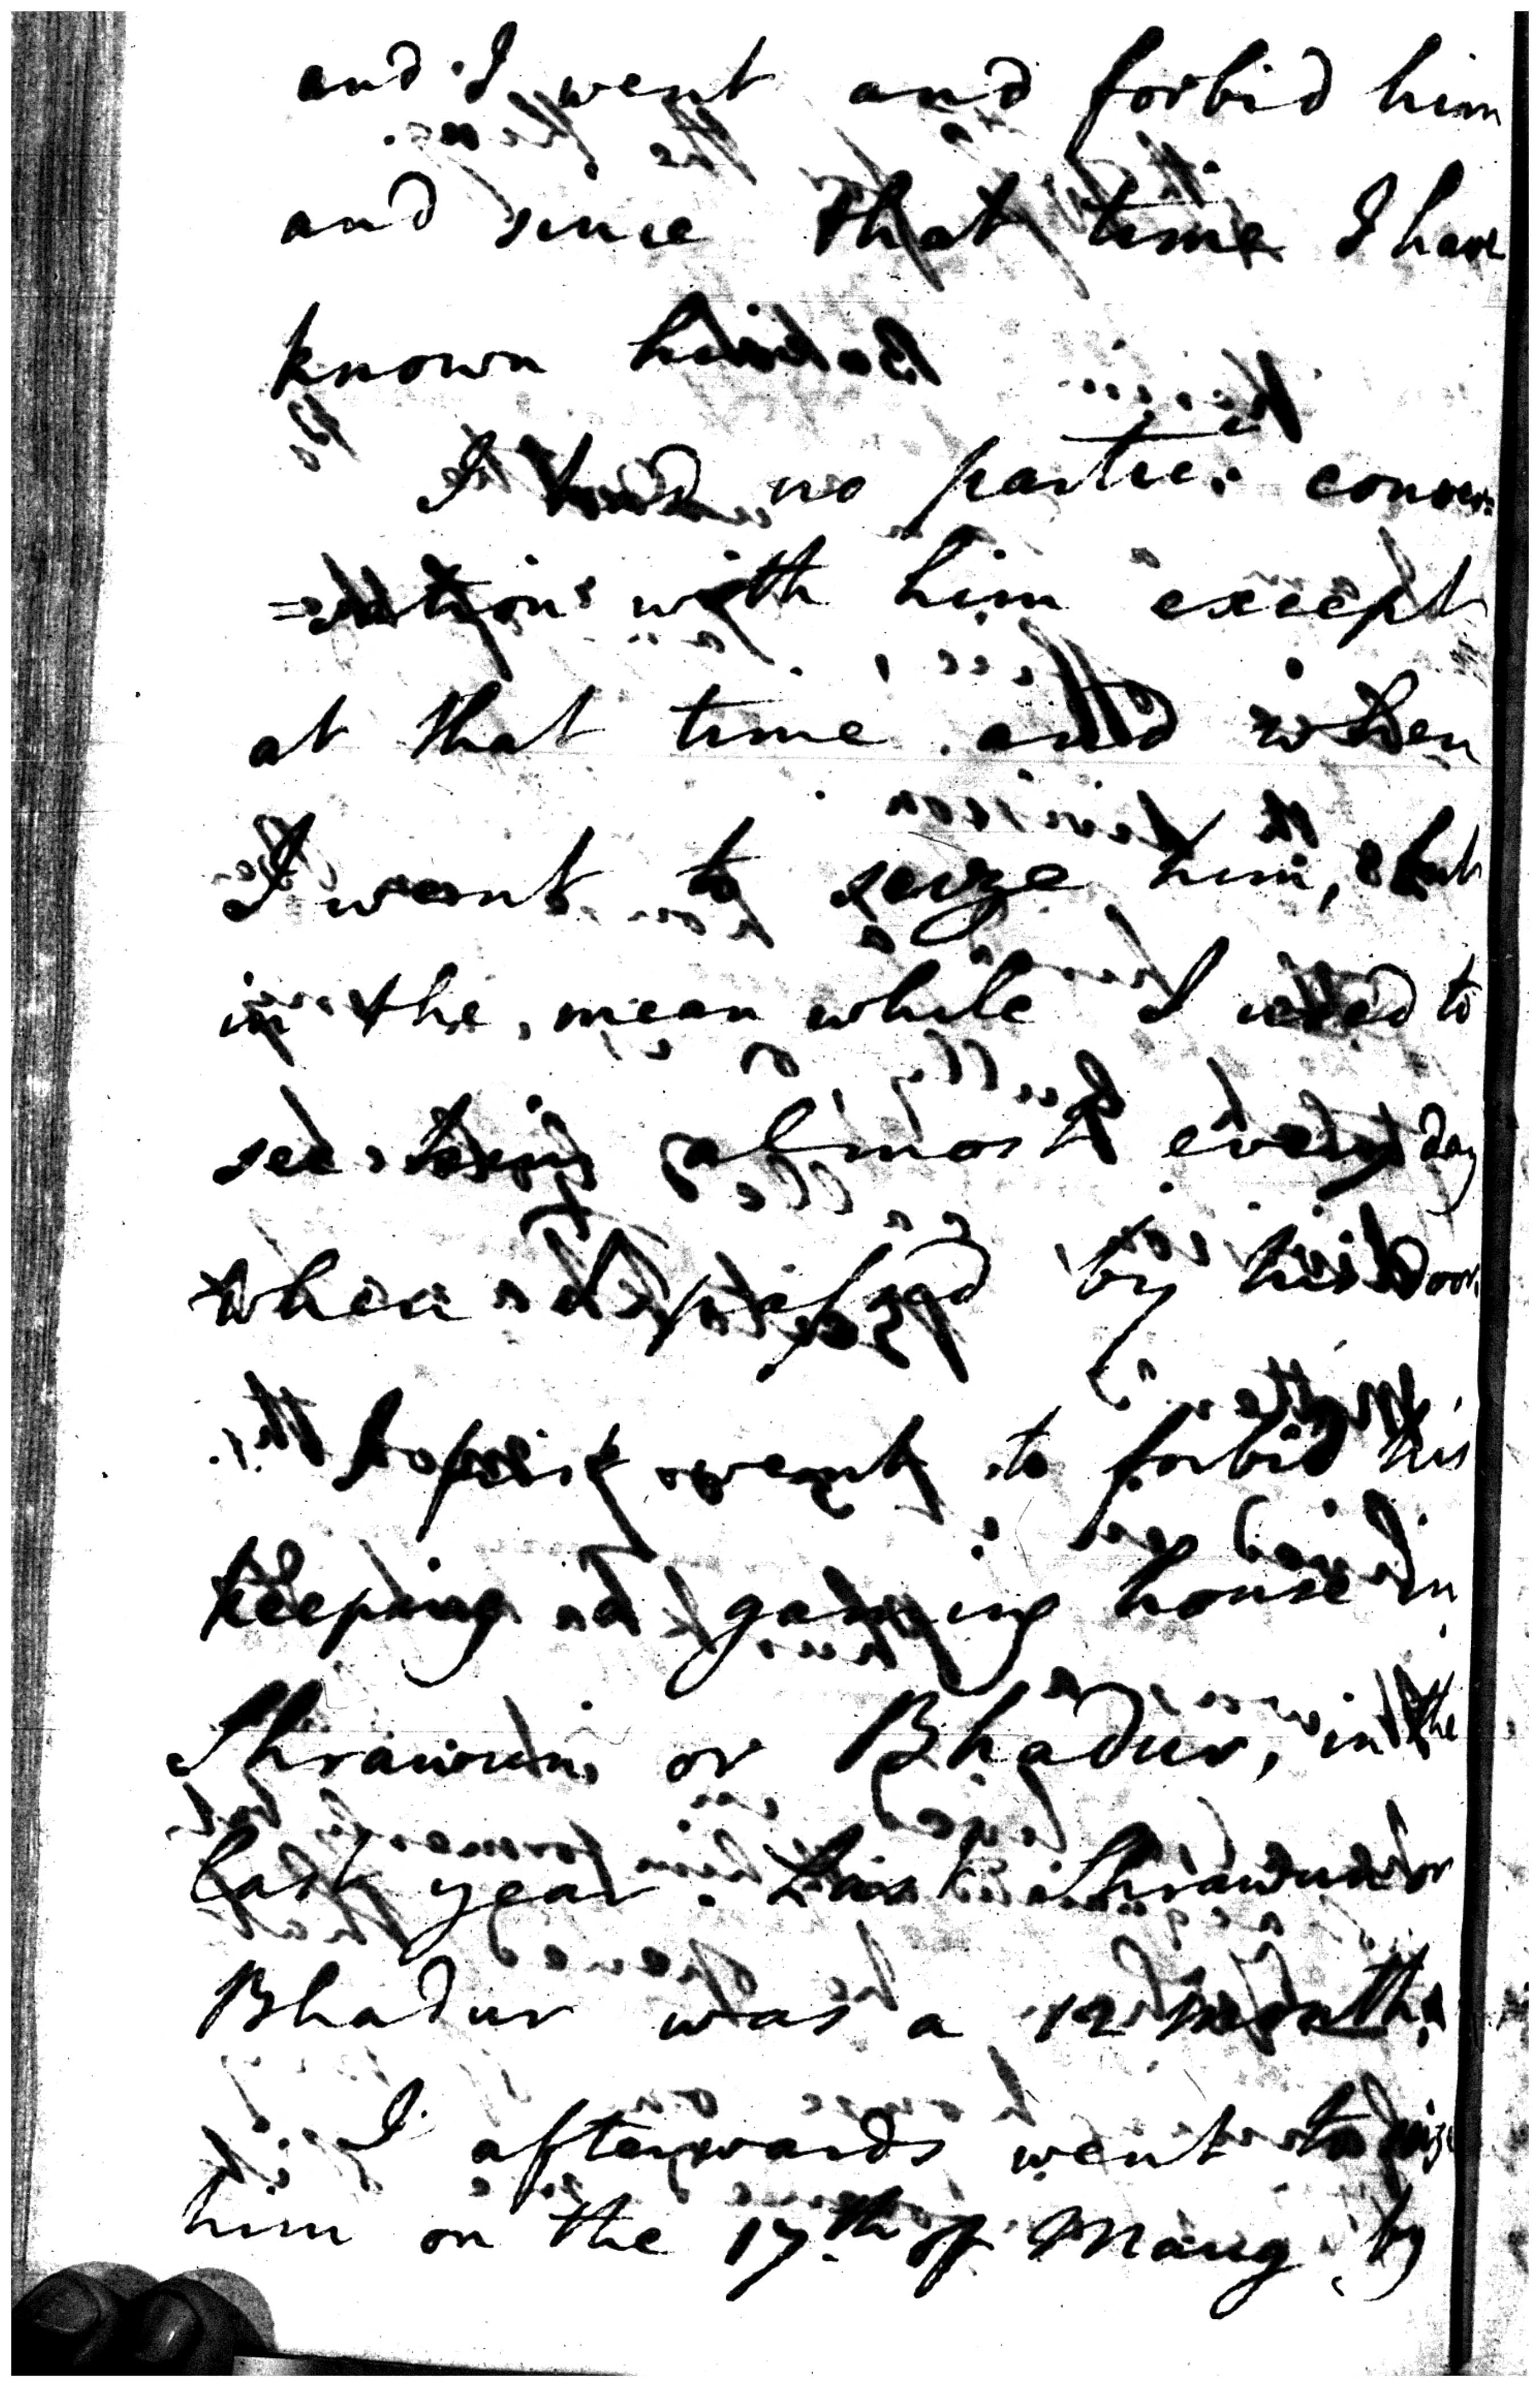 and I went and forbid him
and since that time I have
known him
I had no partic: conver=
=sation with him except
at that time and when
I went to seize him, but
in the mean while I used to
see him almost every day
when I passed by his Door
I first went to forbid his
keeping a gaming house in
Shrawun or Bhadur, in the
last year. Last Shrawun or
Bhadur was a 12 month.
I afterwards went to seize
him on the 17th. of Maug by